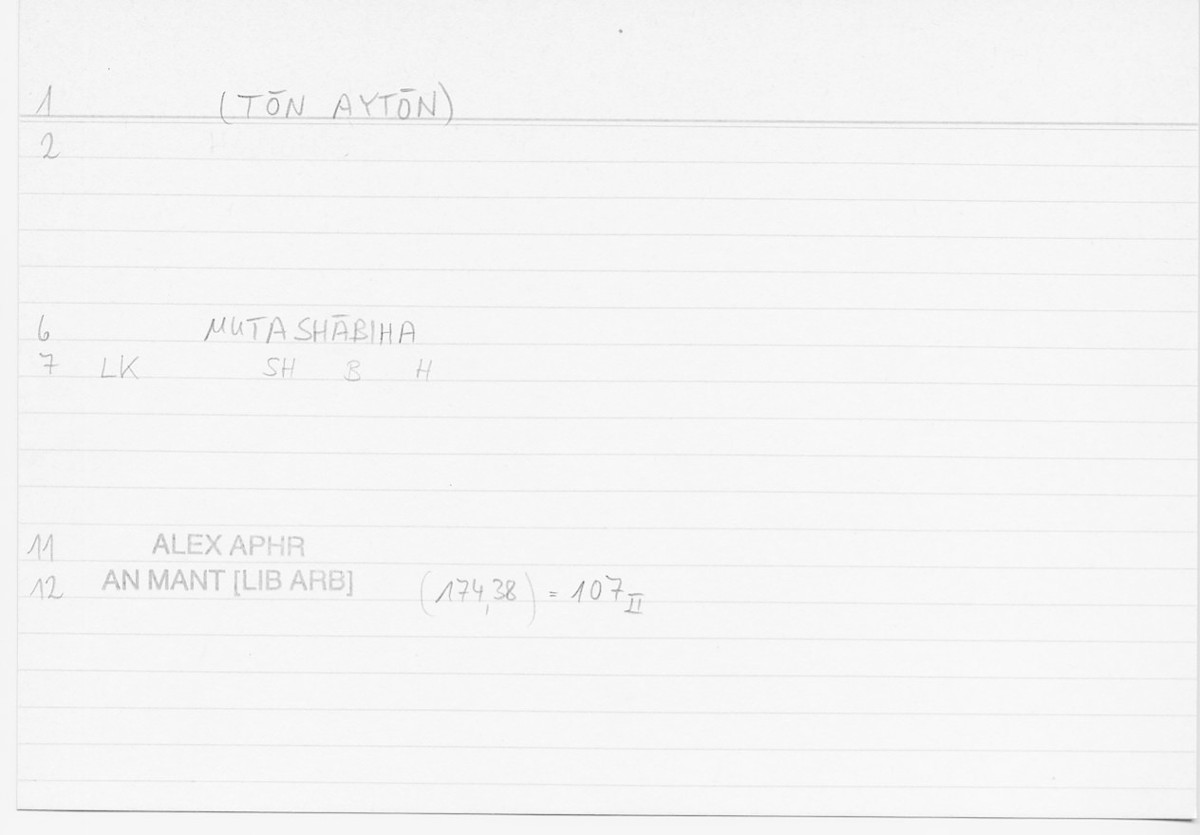 1 (TŌN AYTŌN)
2
6 MUTASHĀBIHA
7 LK SH B H
11 ALEX APHR
12 AN MANT [LIB ARB] (174,38) = 107 II